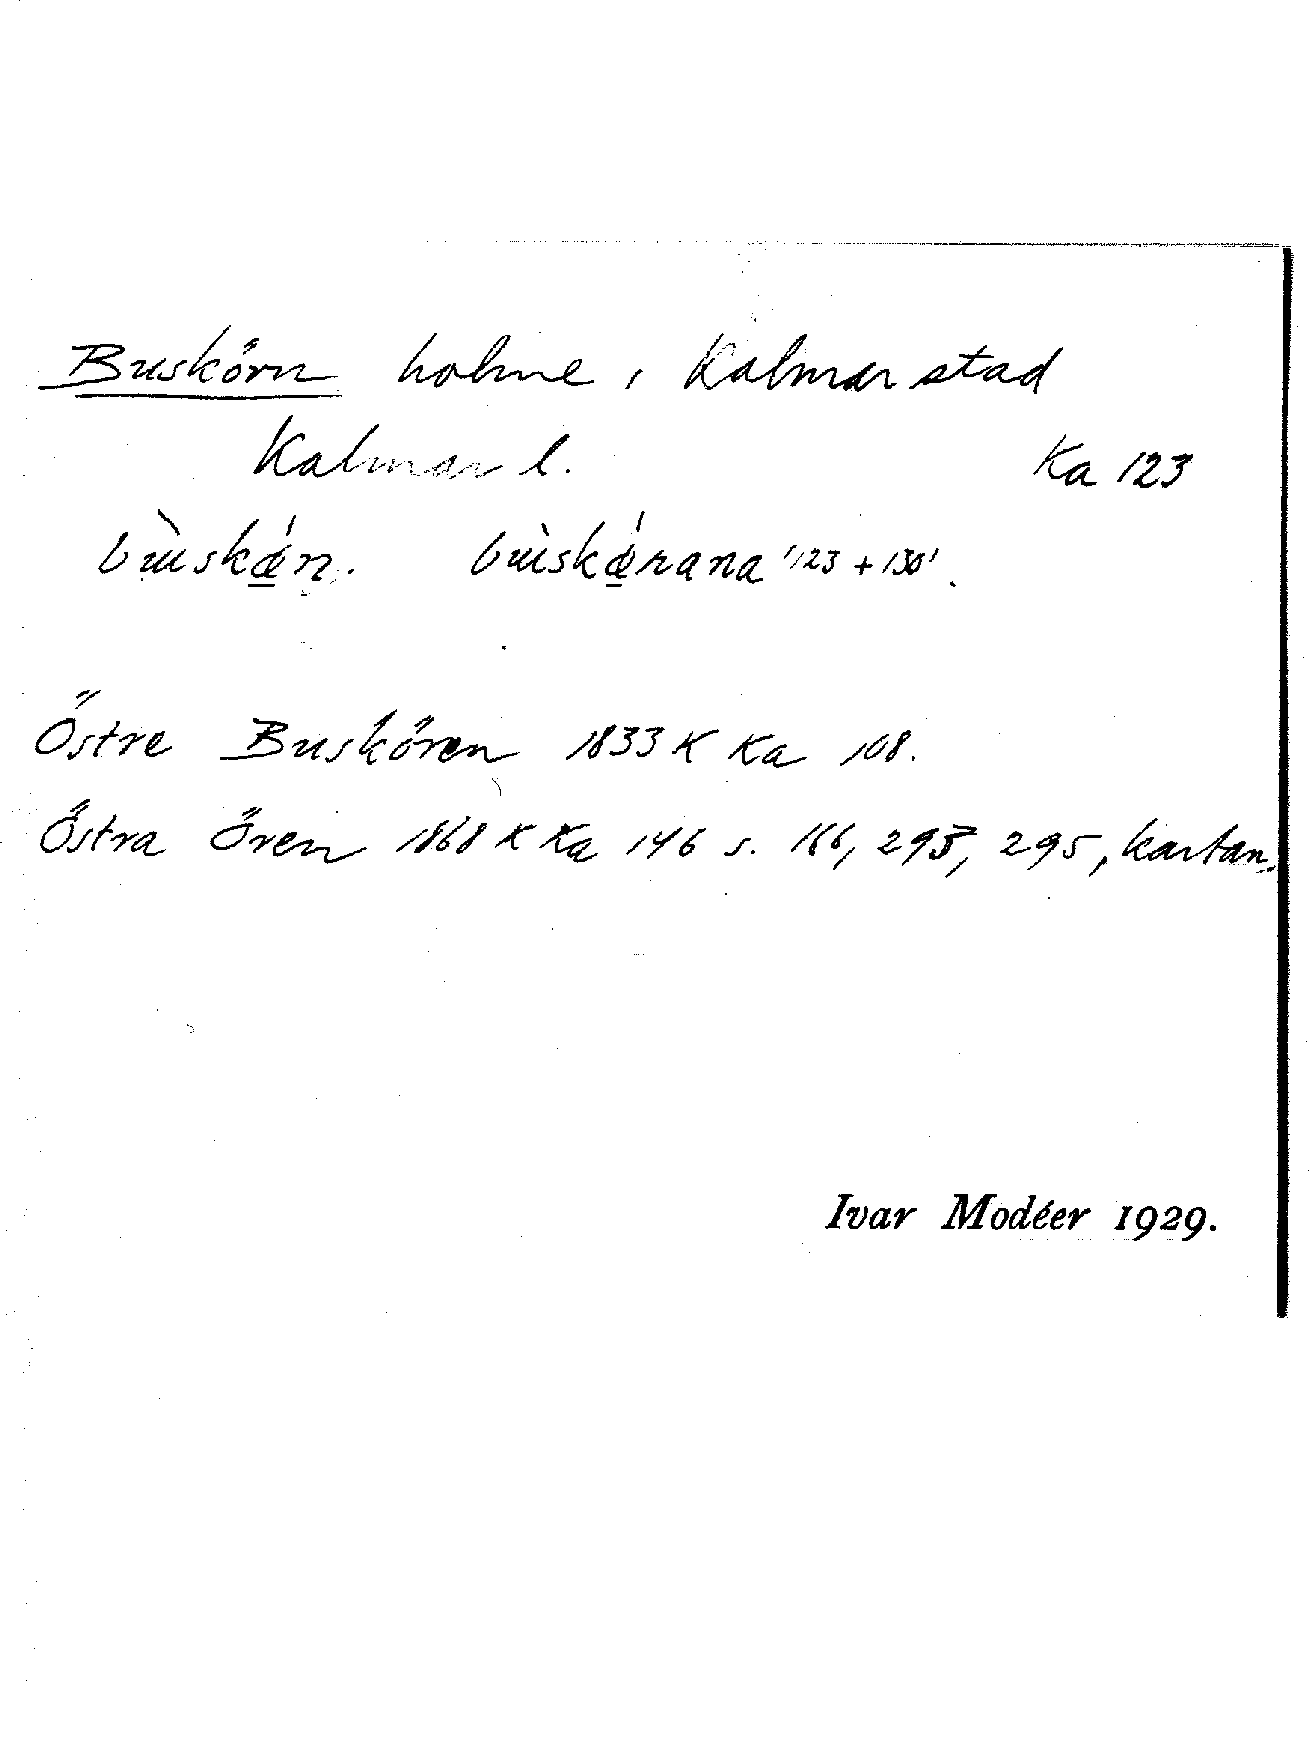 Buskörn holme, Kalmar stad
Kalmar l. Ka 123
bùskǿn. bùskǿrana '123 + 130'.
Östre Buskören 1833 K Ka 108.
Östra Ören 1868 K Ka 146 s. 166, 293, 295, kartan.
Ivar Modéer 1929.